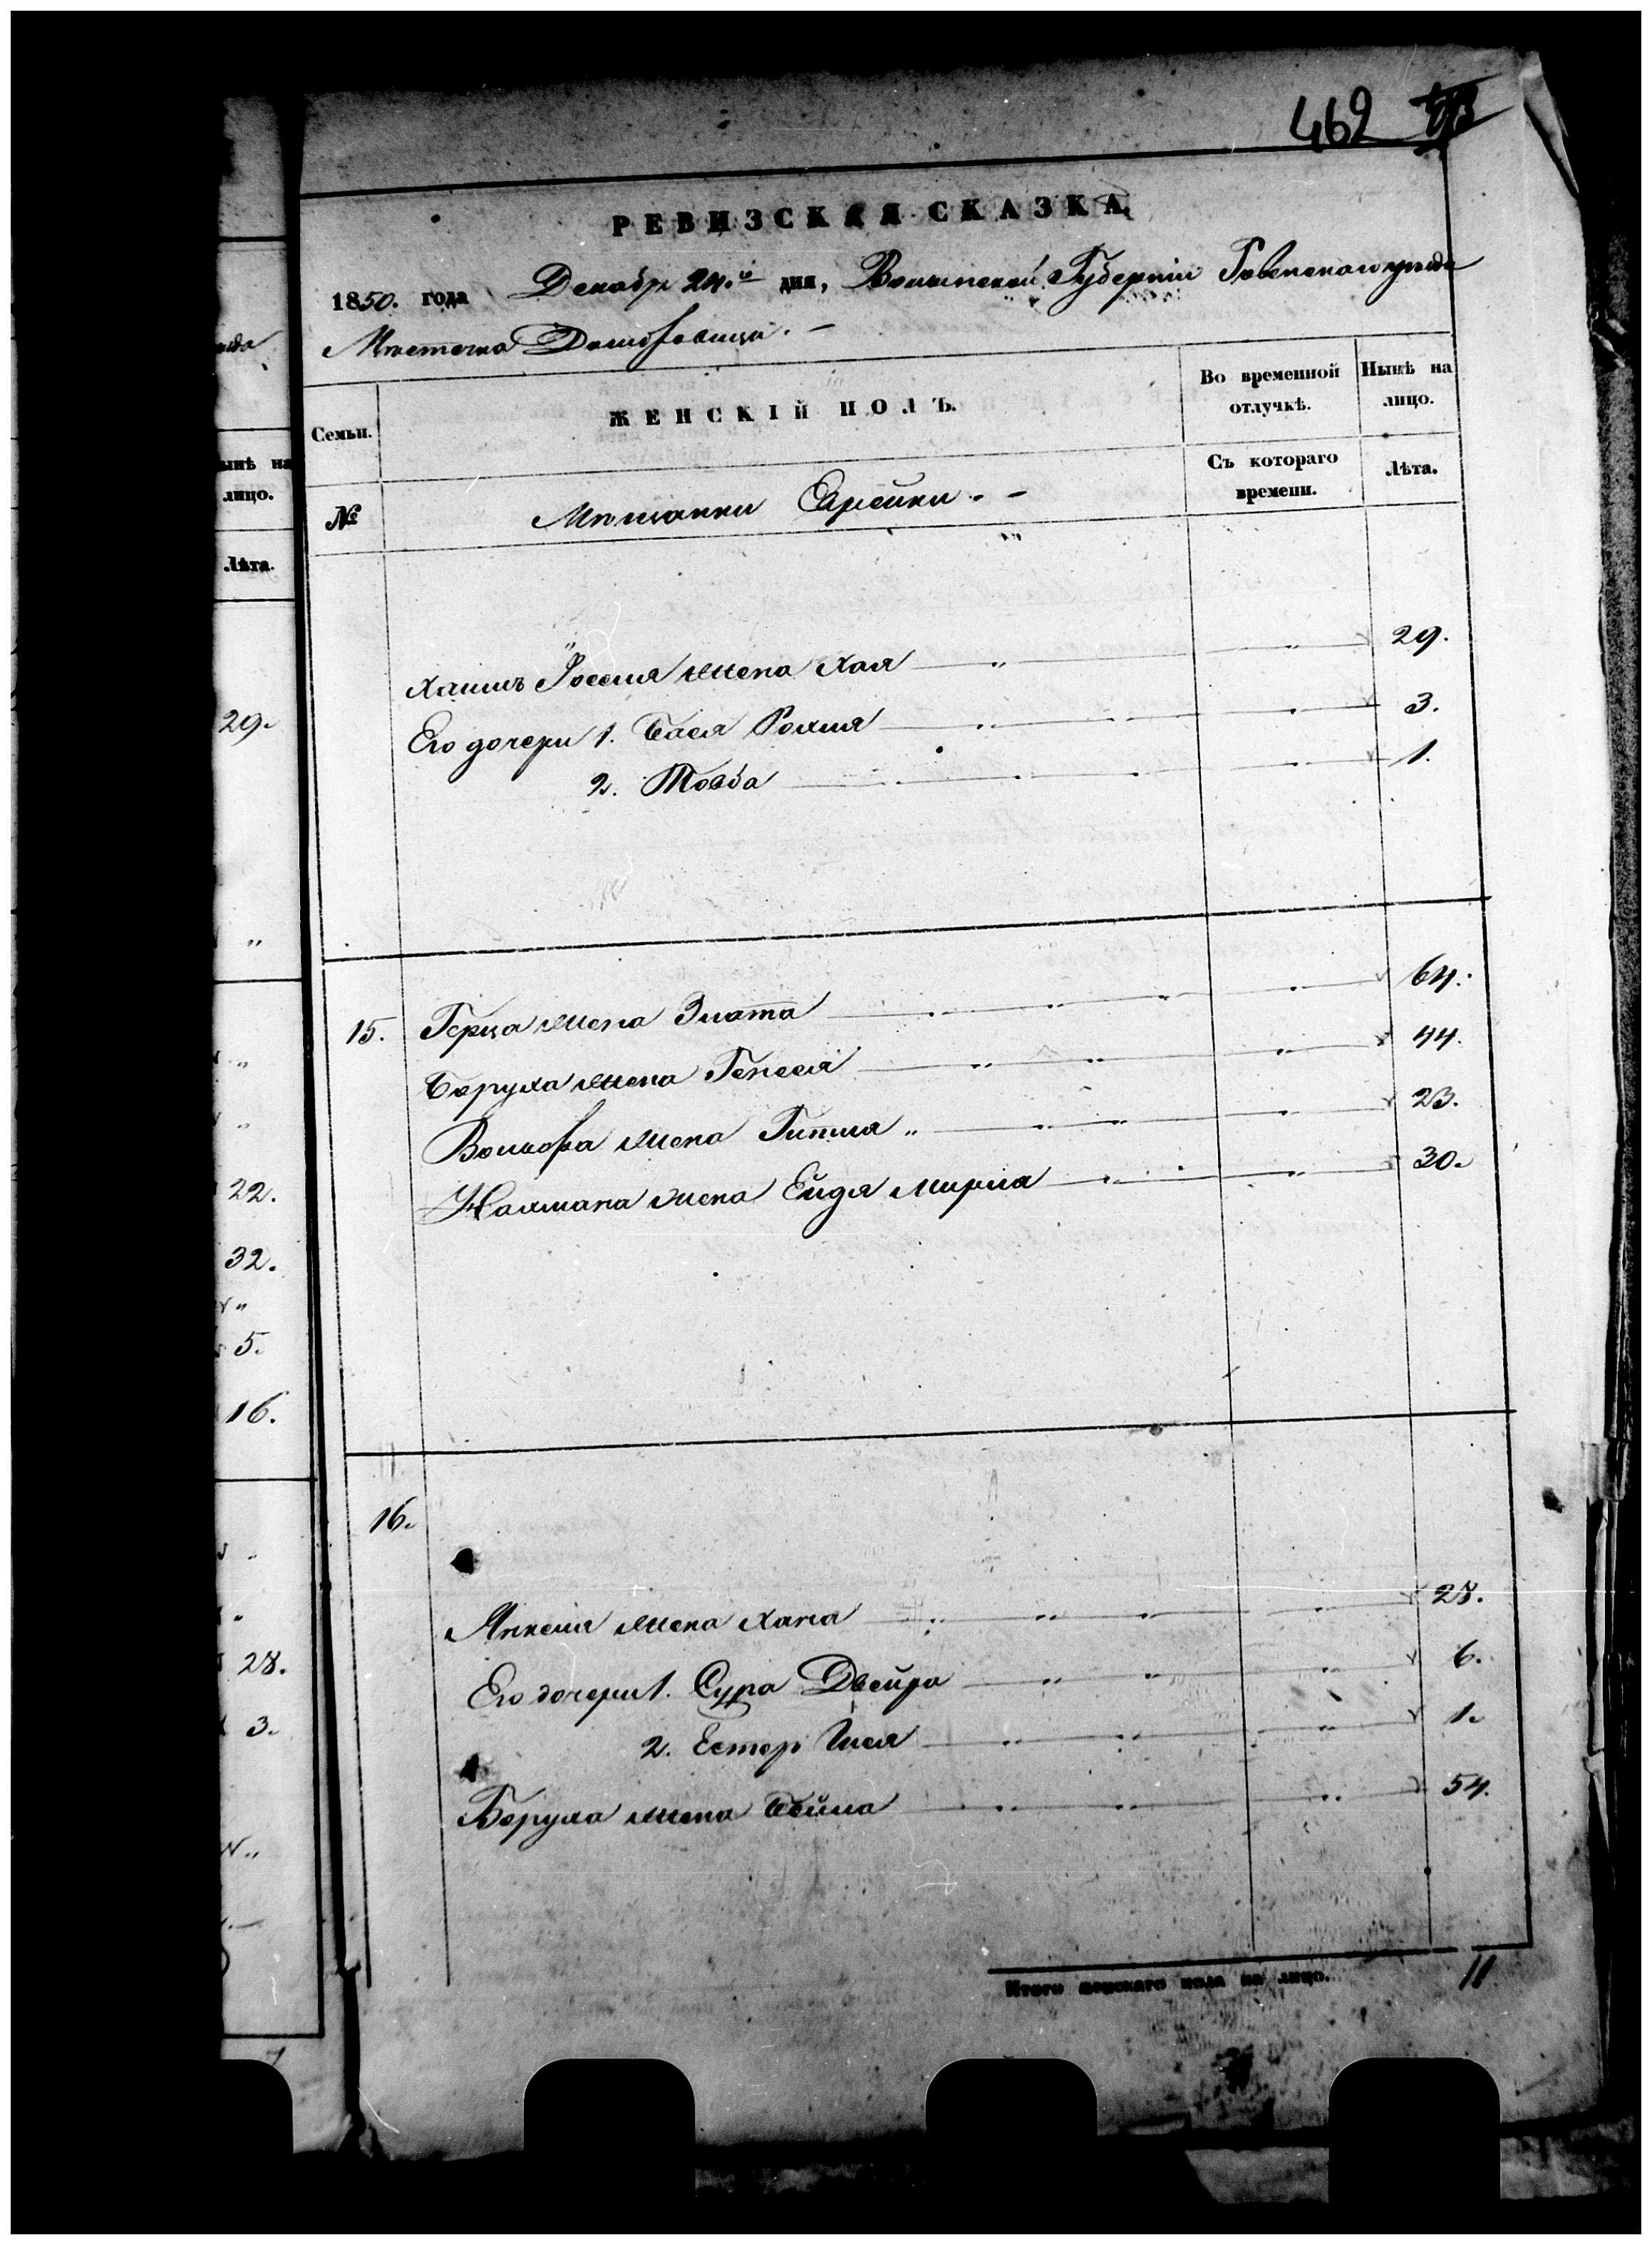 462
РЕВИЗСКАЯ СКАЗКА
1850. года Декабр 24.го дня, Волынской Губернiи Ровенского уѣзда
Мѣстечка Домбровица. —
Семьи.
ЖЕНСКIЙ ПОЛЪ.
Во временной отлучкѣ.
Нынѣ на лицо.
№
Мѣщанки Еврейки. —
Съ котораго времени.
Лѣта.
Хаимъ Іоселя жена Хая 29.
Его дочери 1. Бася Рохля 3.
2. Товба 1.
15. Герца жена Злата 64.
Боруха жена Генеся 44.
Волькова жена Гитля 23.
Калмана жена Ейдя Мирля 30.
16.
Янкеля жена Хана 28.
Его дочери 1. Сура Двейра 6.
2. Естер 1.
Боруха жена Бейла 54.
Итого женскаго пола на лицо. 11
ынѣ на
лицо.
Лѣта.
29.
22.
32.
5.
16.
28.
3.